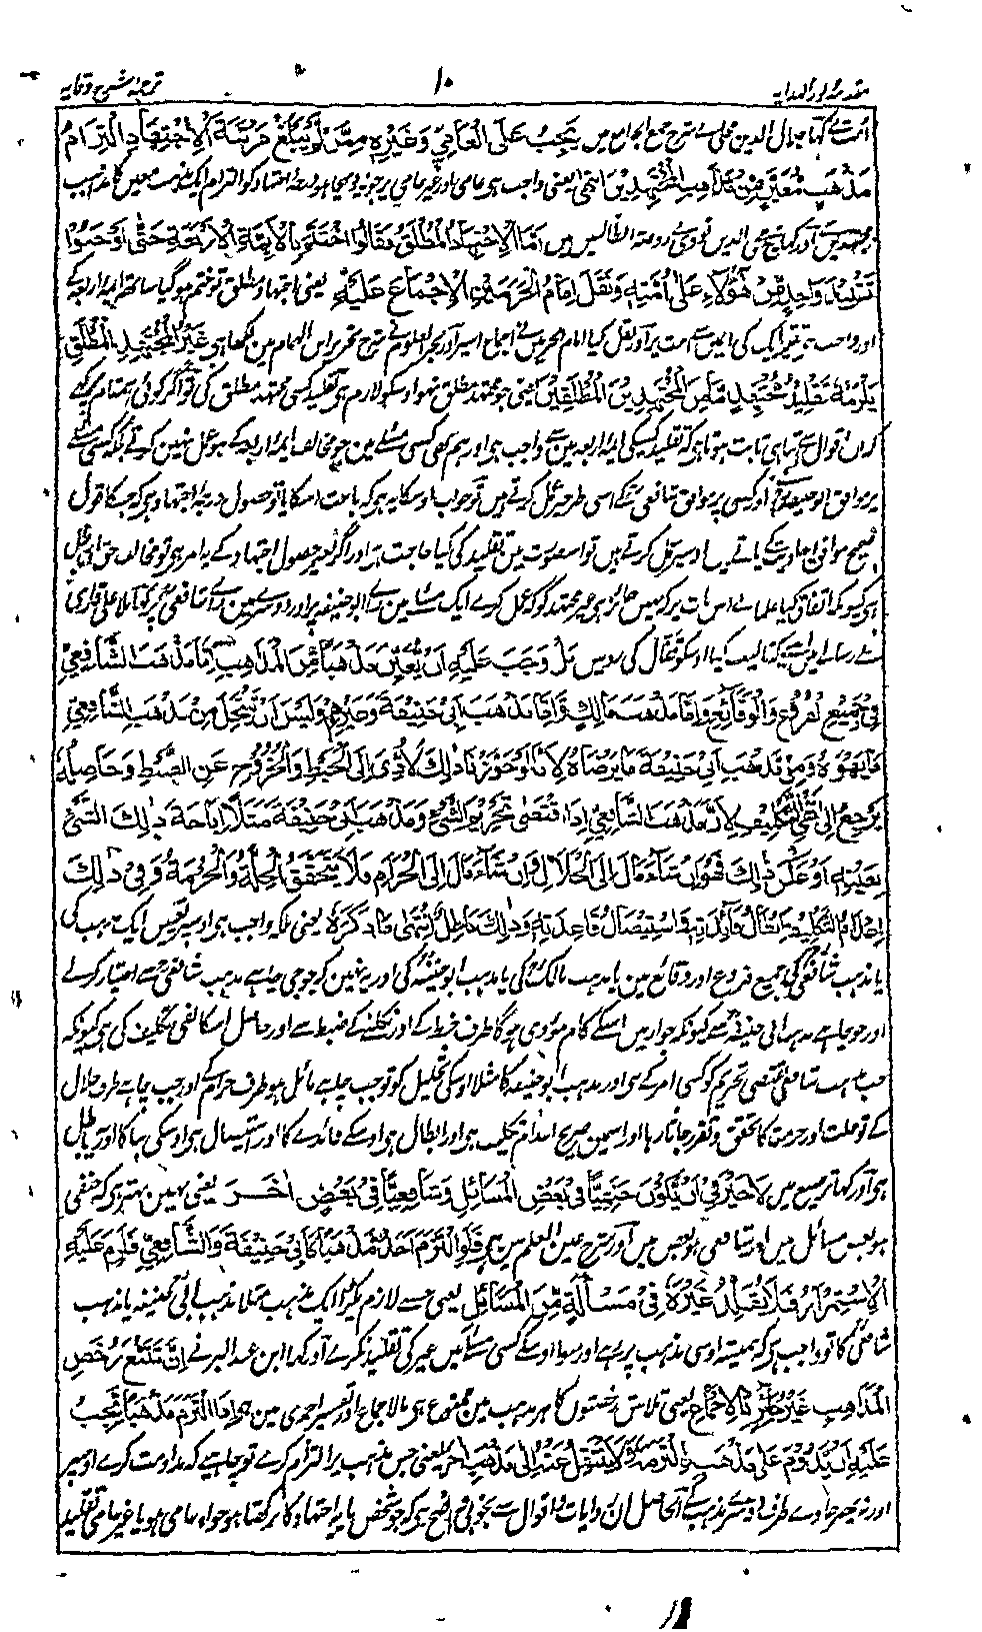 مقدمہ نور الہدایہ ۱۰ ترجمہ شرح وقایہ
امت سے کہا جلال الدین محلی نے شرح جمع الجوامع میں يَجِبُ عَلَى الْعَامِيِّ وَغَيْرِهِ مِمَّنْ لَمْ يَبْلُغْ مَرْتَبَةَ الْاِجْتِهَادِ اِلْتِزَامُ
مَذْهَبٍ مُعَيَّنٍ مِنْ مَذَاهِبِ الْمُجْتَهِدِيْنَ انتہی یعنی واجب ہی عامی اور غیر عامی پر جو نہ پہنچا ہو درجۂ اجتہاد کو التزام ایک مذہب معین کا مذاہب
مجتہدین سے اور کہا شیخ محی الدین نووی نے روضۃ الطالبین میں اَمَّا الْاِجْتِهَادُ الْمُطْلَقُ فَقَالُوا اخْتَتَمَ بِالْاَئِمَّةِ الْاَرْبَعَةِ حَتّٰى اَوْجَبُوْا
تَقْلِيْدَ وَاحِدٍ مِّنْ هٰؤُلَاءِ عَلٰى اُمَّتِهِ وَنَقَلَ اِمَامُ الْحَرَمَيْنِ الْاِجْمَاعَ عَلَيْهِ یعنی اجتہاد مطلق تو ختم ہو گیا ساتھ ایمہ اربعہ کے
اور واجب ہی تقلید ایک کی امین سے امت پر اور نقل کیا امام الحرمین نے اجماع اسپر اور بحر العلوم نے شرح تحریر ابن الہمام مین لکھا ہی غَيْرُ الْمُجْتَهِدِ الْمُطْلَقِ
يَلْزَمُهُ تَقْلِيْدُ مُجْتَهِدٍ مَّا مِنَ الْمُجْتَهِدِيْنَ الْمُطْلَقِيْنَ یعنی جو مجتہد مطلق نہو اوسکو لازم ہی تقلید کسی مجتہد مطلق کی تو اگر کوئی اس مقام پر کہے
کہ ان اقوال سے تو اتنا ہی ثابت ہوتا ہی کہ تقلید کسیکی ایمہ اربعہ مین سے واجب ہی اور ہم بھی کسی مسئلے مین جو مخالف ایمہ اربعہ کے ہو عمل نہین کرتے بلکہ کسی مسئلے
پر موافق ابو حنیفہؒ اور کسی پر موافق شافعیؒ کے اسی طرح عمل کرتے ہین تو جواب اوسکا یہ ہی کہ باعث اسکا یا تو حصول درجۂ اجتہاد ہی کہ جسکا قول
صحیح موافق احادیث کے پاتے ہیں اوسپر عمل کرتے ہین تو اس صورت مین تقلید کی کیا حاجت ہی اور اگر بغیر حصول اجتہاد کے یہ امر ہی تو مخالف حق اور باطل
ہی کیونکہ اتفاق کیا علمانے اس بات پر کہ نہیں جائز ہی غیر مجتہد کو کہ عمل کرے ایک مسئلے مین رائے ابو حنیفہ پر اور دوسرے مین رائے شافعیؒ پر کہا ملا علی قاری
نے رسالے مین جسکو تالیف کیا اوسکو قفال کی رد میں بَلْ وَجَبَ عَلَيْهِ اَنْ يُّعَيِّنَ مَذْهَبًا مِّنَ الْمَذَاهِبِ اِمَّا مَذْهَبَ الشَّافِعِيِّ
فِيْ جَمِيْعِ الْفُرُوْعِ وَالْوَقَائِعِ وَاِمَّا مَذْهَبَ مَالِكٍ وَّاِمَّا مَذْهَبَ اَبِيْ حَنِيْفَةَ وَغَيْرِهِمْ وَلَيْسَ اَنْ يَّنْتَحِلَ مِنْ مَذْهَبِ الشَّافِعِيِّ
مَا يَهْوَاهُ وَمِنْ مَذْهَبِ اَبِيْ حَنِيْفَةَ مَا يَرْضَاهُ لِاَنَّا لَوْ جَوَّزْنَا ذٰلِكَ لَاَدّٰى اِلَى الْخَبْطِ وَالْخُرُوْجِ عَنِ الضَّبْطِ وَحَاصِلُهُ
يَرْجِعُ اِلٰى نَفْيِ التَّكْلِيْفِ لِاَنَّ مَذْهَبَ الشَّافِعِيِّ اِذَا اقْتَضٰى تَحْرِيْمَ الشَّيْءِ وَمَذْهَبَ اَبِيْ حَنِيْفَةَ مَثَلًا اِبَاحَةَ ذٰلِكَ الشَّيْءِ
بِعَيْنِهِ اَوْ عَلٰى ذٰلِكَ فَهُوَ اِنْ شَاءَ مَالَ اِلَى الْحَلَالِ وَاِنْ شَاءَ مَالَ اِلَى الْحَرَامِ فَلَا يَتَحَقَّقُ الْحِلَّةُ وَالْحُرْمَةُ وَفِيْ ذٰلِكَ
اِعْدَامُ التَّكْلِيْفِ وَاِبْطَالُ فَائِدَتِهِ وَاسْتِيْصَالُ قَاعِدَتِهِ وَذٰلِكَ بَاطِلٌ اِنْتَهٰى مَا ذَكَرَهُ یعنی بلکہ واجب ہی اوسپر تعیین ایک مذہب کی
یا مذہب شافعیؒ کی جمیع فروع اور وقائع مین یا مذہب مالکؒ کی یا مذہب ابو حنیفہؒ کی اور یہ نہین کہ جو جی چاہے مذہب شافعیؒ سے اختیار کرے
اور جو چاہے مذہب ابی حنیفہؒ سے کیونکہ جواز مین اسکے کام مؤدی ہوگا طرف خبط کے اور نکلنے کے ضبط سے اور حاصل اسکا نفی تکلیف کی ہی کیونکہ
جب مذہب شافعیؒ مقتضی تحریم کو کسی امر کے ہی اور مذہب ابو حنیفہ کا مثلا اوسکی تحلیل کو تو جب چاہے مائل ہو طرف حرام کے اور جب چاہے طرف حلال
کے تو حلت اور حرمت کا تحقق و تقرر جاتا رہا اور اسمین صریح اعدام تکلیف ہی اور ابطال ہی اوسکے فائدے کا اور استیصال ہی اوسکی بنا کا اور یہ باطل
ہی اور کہا توضیح میں لَا خَيْرَ فِيْ اَنْ يَّكُوْنَ حَنَفِيًّا فِيْ بَعْضِ الْمَسَائِلِ وَشَافِعِيًّا فِيْ بَعْضٍ اٰخَرَ یعنی نہین بہتر ہی کہ حنفی
ہو بعض مسائل میں اور شافعی ہو بعض میں اور شرح عین العلم مین ہی فَلَوِ الْتَزَمَ اَحَدٌ مَذْهَبًا كَاَبِيْ حَنِيْفَةَ وَالشَّافِعِيِّ فَلَزِمَ عَلَيْهِ
الْاِسْتِمْرَارُ فَلَا يُقَلِّدُ غَيْرَهُ فِيْ مَسْأَلَةٍ مِّنَ الْمَسَائِلِ یعنی جسنے لازم پکڑا ایک مذہب مثلا مذہب ابی حنیفہ یا مذہب
شافعیؒ کا تو واجب ہی کہ ہمیشہ اوسی مذہب پر رہے اور سوا اوسکے کسی مسئلے میں غیر کی تقلید نکرے اور کہا ابن عبد البر نے اِنَّ تَتَبُّعَ رُخَصِ
الْمَذَاهِبِ غَيْرُ جَائِزٍ بِالْاِجْمَاعِ یعنی تلاش رخصتوں کا ہر مذہب مین ممنوع ہی بالاجماع اور تفسیر احمدی مین ہی اِذَا الْتَزَمَ مَذْهَبًا يَجِبُ
عَلَيْهِ اَنْ يَّدُوْمَ عَلٰى مَذْهَبٍ اِلْتَزَمَهُ لَا يَنْتَقِلُ عَنْهُ اِلٰى مَذْهَبٍ اٰخَرَ یعنی جس مذہب پر التزام کرے تو چاہیے کہ مداومت کرے اوسپر
اور نہ پھر جاوے طرف دوسرے مذہب کے الحاصل ان روایات و اقوال سے بخوبی واضح ہی کہ جو شخص پایہ اجتہاد کا نرکھتا ہو خواہ عامی ہو یا غیر عامی تقلید